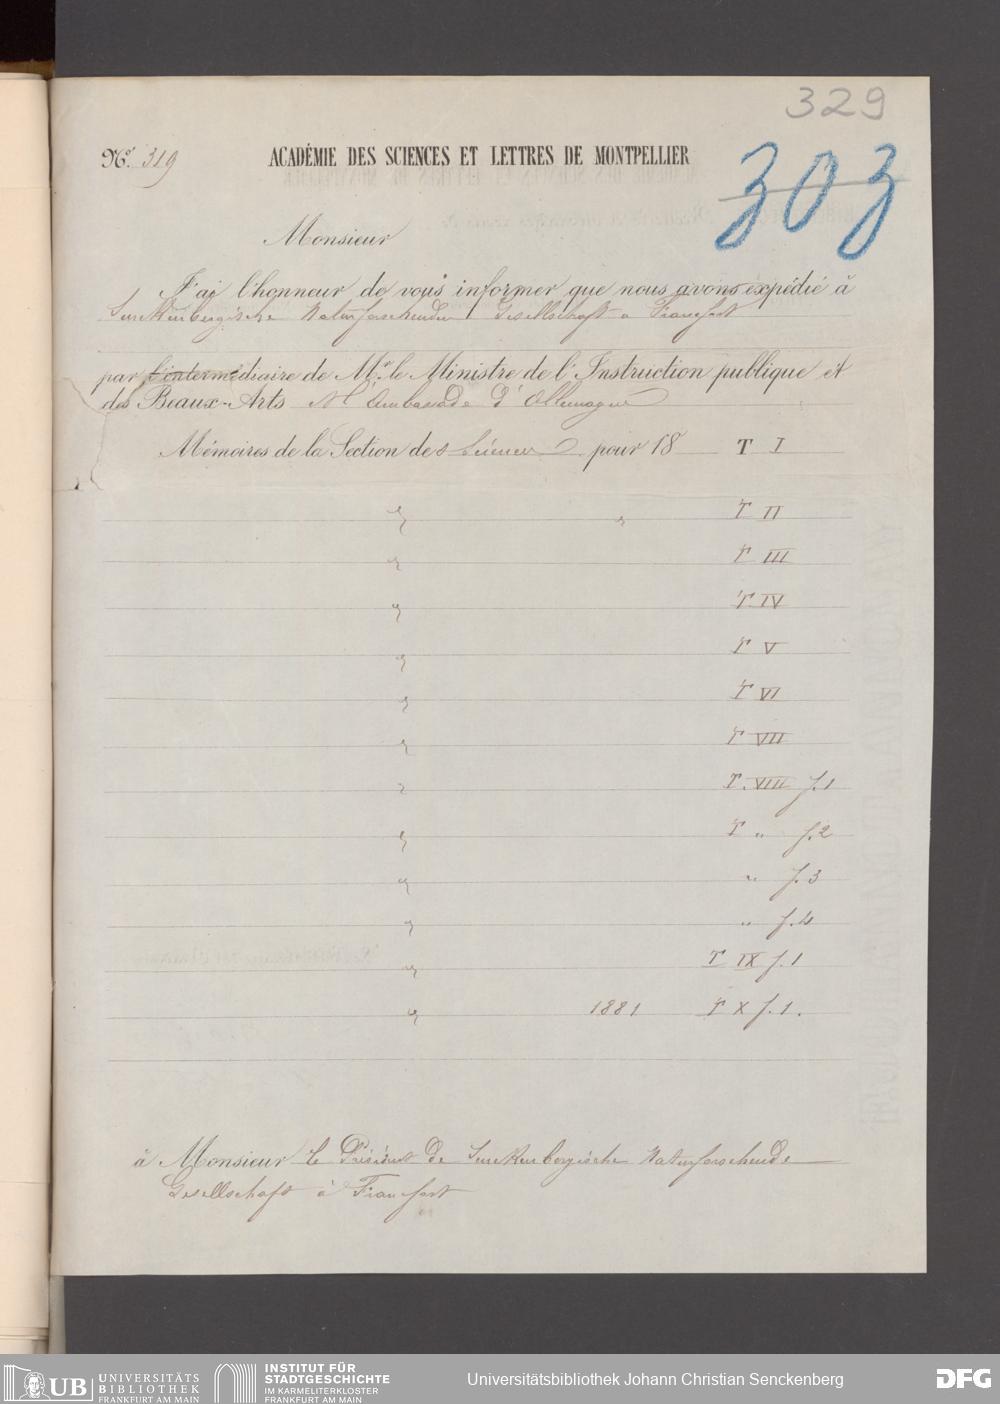 329
303
Nº. 319
ACADÉMIE DES SCIENCES ET LETTRES DE MONTPELLIER
Monsieur
J'ai l'honneur de vous informer que nous avons expédié à
Senckenbergische Naturforschenden Gesellschaft a Francfort
par l'intermédiaire de Mr. le Ministre de l'Instruction publique et
des Beaux-Arts M l'ambassade d'Allemagne
Mémoires de la Section des Sciences pour 18 T I
" " T II
" T III
" T. IV
" T V
" T VI
" T VII
" T. VIII f.1
" T " f.2
" " f.3
" " f.4
" T IX f.1
" 1881 T X f.1.
à Monsieur le Président de Senckenbergische Naturforschende
Gesellschaft à Francfort
UB UNIVERSITÄTS
BIBLIOTHEK
FRANKFURT AM MAIN
INSTITUT FÜR
STADTGESCHICHTE
IM KARMELITERKLOSTER
FRANKFURT AM MAIN
Universitätsbibliothek Johann Christian Senckenberg
DFG